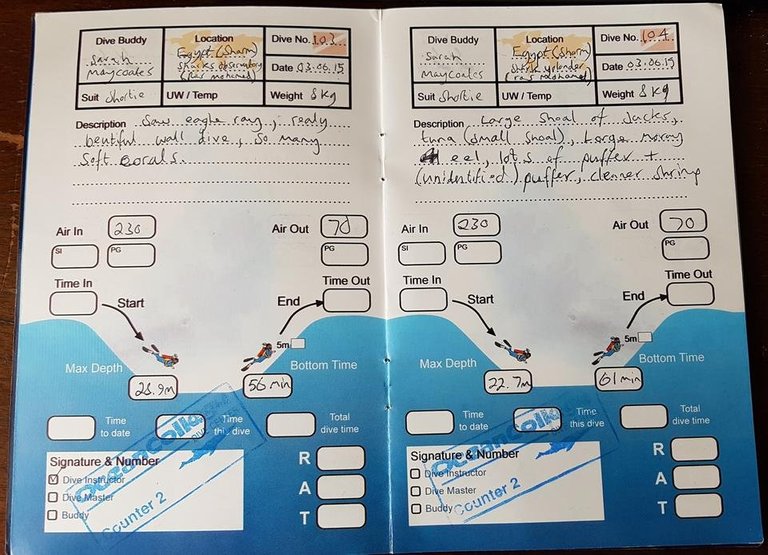 Dive Buddy
Sarah
Maycoates
Location
Egypt (Sharm)
Sharks observatory
(Ras mohamed)
Dive No. 103
Date 03.06.15
Suit Shortie
UW / Temp
Weight 8 kg
Description Saw eagle ray, realy
beutiful wall dive, so many
soft corals.
Air In 230
Air Out 70
SI
PG
PG
Time In
Time Out
Start
End
5m
Max Depth
Bottom Time
56 min
Time
to date
Time
this dive
Total
dive time
Signature & Number
Dive Instructor
Dive Master
Buddy
R
A
T
Counter 2
Dive Buddy
Sarah
Maycoates
Location
Egypt (Sharm)
(Ras mohamed)
Dive No. 104
Date 03.06.15
Suit Shortie
UW / Temp
Weight 8 kg
Description Large Shoal of Jacks,
tuna (small shoal), Large moray
eel, lots of puffer +
(unidentified) puffer, cleaner shrimp
Air In 230
Air Out 70
SI
PG
PG
Time In
Time Out
Start
End
5m
Max Depth
22.7m
Bottom Time
61 min
Time
to date
Time
this dive
Total
dive time
Signature & Number
Dive Instructor
Dive Master
Buddy
R
A
T
Counter 2